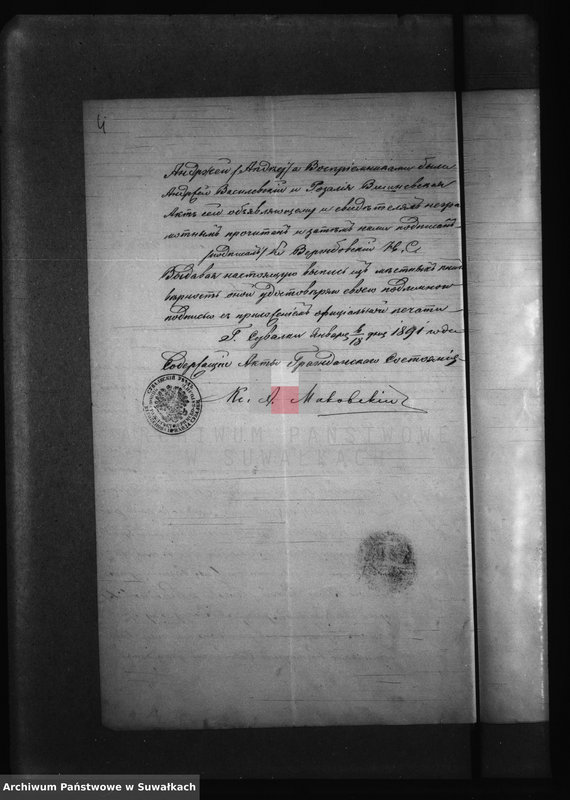 4
Андржей /Andrzej/ а Воспріемниками были
Андржей Василевскій и Розалія Вишневская
Актъ сей объявляющему и свидѣтелямъ негра-
мотнымъ прочитанъ и затѣмъ нами подписанъ
/подписалъ/ Кс Вержбовскій Н. С.
Выдавая настоящую выпись изъ мѣстныхъ книгъ
вѣрность оной удостовѣряю своею подлинною
подписью съ приложеніемъ официальной печати
Г. Сувалки Января 6/18 дня 1891 года
Содержащій Акты Гражданского Состоянія
Кс. А. Маковскій
ARCHIWUM PAŃSTWOWE
W SUWAŁKACH
Archiwum Państwowe w Suwałkach